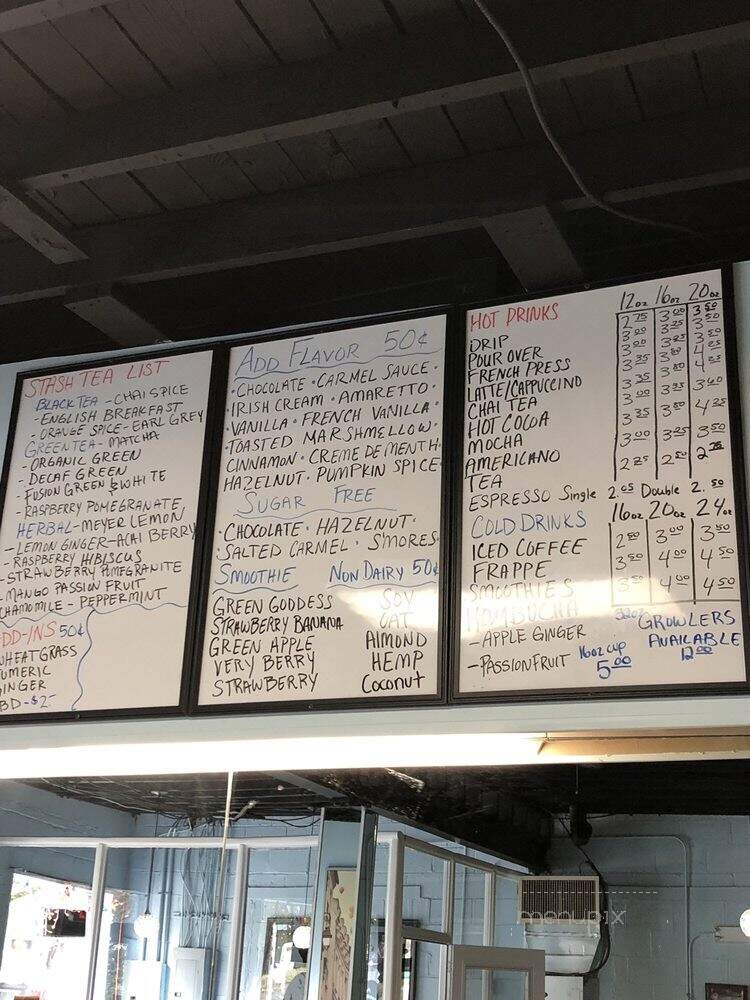 STASH TEA LIST
BLACK TEA - CHAI SPICE
- ENGLISH BREAKFAST
- ORANGE SPICE - EARL GREY
GREEN TEA - MATCHA
- ORGANIC GREEN
- DECAF GREEN
- FUSION GREEN & WHITE
- RASPBERRY POMEGRANATE
HERBAL - MEYER LEMON
- LEMON GINGER - ACAI BERRY
- RASPBERRY HIBISCUS
- STRAWBERRY POMEGRANITE
- MANGO PASSION FRUIT
CHAMOMILE - PEPPERMINT
DD-INS 50¢
WHEATGRASS
UMERIC
INGER
BD - $2-
ADD FLAVOR 50¢
• CHOCOLATE • CARMEL SAUCE •
IRISH CREAM • AMARETTO •
• VANILLA • FRENCH VANILLA •
• TOASTED MARSHMELLOW •
CINNAMON • CREME DE MENTH •
HAZELNUT • PUMPKIN SPICE
SUGAR FREE
• CHOCOLATE • HAZELNUT •
• SALTED CARMEL • S'MORES
SMOOTHIE NON DAIRY 50¢
GREEN GODDESS SOY
STRAWBERRY BANANA OAT
GREEN APPLE ALMOND
VERY BERRY HEMP
STRAWBERRY Coconut
HOT DRINKS 12oz 16oz 20oz
DRIP 2 75 3 00 3 50
POUR OVER 3 00 3 25 3 50
FRENCH PRESS 3 00 3 25 3 50
LATTE/CAPPUCCINO 3 35 3 80 4 25
CHAI TEA 3 35 3 80 4 25
HOT COCOA 3 00 3 35 3 60
MOCHA 3 35 3 80 4 25
AMERICANO 3 00 3 25 3 50
TEA 2 25 2 50 2 75
ESPRESSO Single 2.05 Double 2.50
COLD DRINKS 16oz 20oz 24oz
ICED COFFEE 2 50 3 00 3 50
FRAPPE 3 50 4 00 4 50
SMOOTHIES 3 50 4 00 4 50
KOMBUCHA 32oz GROWLERS
- APPLE GINGER AVAILABLE
- PASSIONFRUIT 16oz cup 5.00 12.00
menupix